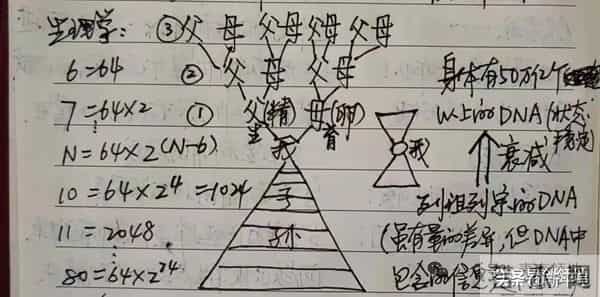 生理学: ③父 母 父母 父母 父母
6=64 ② 父母 父母 身体有50万亿个
7=64×2 ① 父(精) 母(卵) 以上的DNA(状态稳定)
生 育
N=64×2(N-6) 我 我) 衰减
10=64×2⁴=1024 子 到组到宗的DNA
11=2048 子孙 (虽有量的差异,但DNA中
80=64×2⁷⁴ 包含的信息